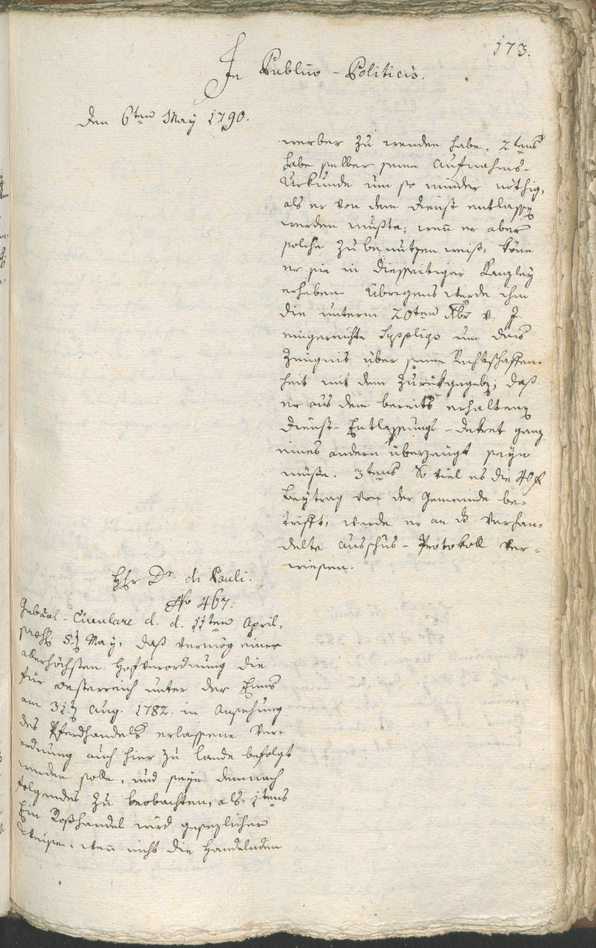 173.
In Publico-Politicis.
Den 6ten May 1790.
werber zu wenden habe. 2tens
habe selber seine Aufnahms-
Urkunde um so minder nöthig,
als er von dem Dienst entlassen
werden mußte; wenn er aber
solche zu benutzen weiß, könne
er sie in diesseitiger Kanzley
erheben. Übrigens werde ihm
die unterm 20ten v. J.
eingereichte Supplique um das
Zeugnis über seine Rechtschaffen-
heit mit dem zurückgegeben; daß
er aus dem bereits erhaltenen
Dienst-Entlassungs-Dekret ganz
eines andern überzeugt seyn
müße. 3tens So viel es die 40 f
Beytrag von der Gemeinde be-
trifft, werde er an das verhan-
delte Ausschus-Protokoll ver-
wiesen.
Hr Dr. di Pauli.
No 467.
Gubernial-Circulare d. d. 11ten April,
May, daß vermög einer
allerhöchsten Hofverordnung die
für Oesterreich unter der Enns
am 31t Aug. 1782. in Ansehung
des Pferdhandels erlassene Ver-
ordnung auch hier zu Lande befolgt
werden solle, und seye demnach
folgendes zu beobachten, als 1tens
Ein Roßhandel wird gesezlicher
Weise, wenn nicht die Handelnden